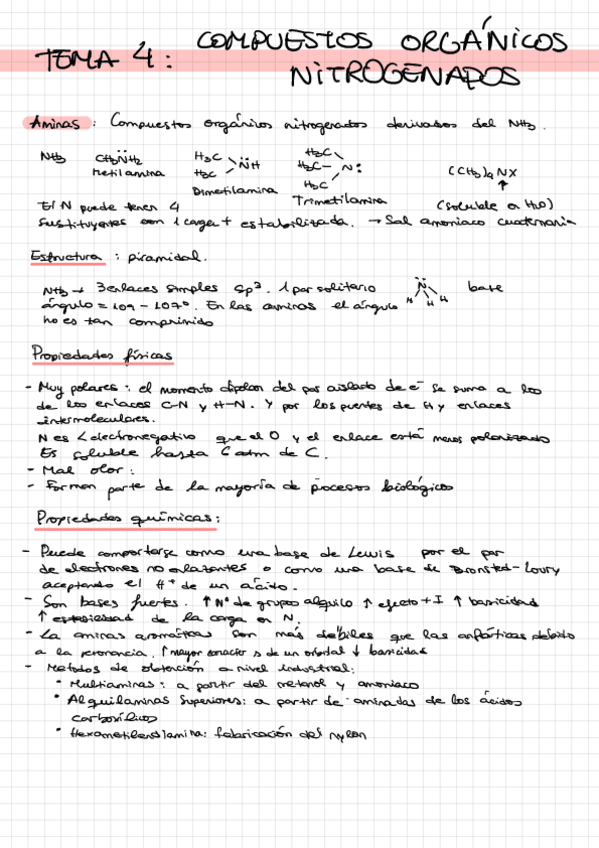 TEMA 4: COMPUESTOS ORGÁNICOS
NITROGENADOS
Aminas: Compuestos orgánicos nitrogenados derivados del NH3.
NH3 CH3NH2 H3C H3C NH H3C H3C- H3C N: (CH3)4NX
Metilamina Dimetilamina Trimetilamina (soluble en H2O)
El N puede tener 4
sustituyentes con 1 carga + estabilizada. → Sal amoniaco cuaternaria
Estructura: piramidal.
NH3 → 3 enlaces simples sp3. 1 par solitario N H H H base
ángulo = 109 - 107º. En las aminas el ángulo
no es tan comprimido
Propiedades físicas
- Muy polares: el momento dipolar del par aislado de e- se suma a los
de los enlaces C-N y H-N. Y por los puentes de H y enlaces
intermoleculares.
N es < electronegativo que el O y el enlace está menos polarizado
Es soluble hasta 6 atm de C.
- Mal olor:
- Forman parte de la mayoría de procesos biológicos
Propiedades químicas:
- Puede comportarse como una base de Lewis por el par
de electrones no enlazantes o como una base de Bronsted-Lowry
aceptando el H+ de un ácido.
- Son bases fuertes. ↑ Nº de grupo alquilo ↑ efecto +I ↑ basicidad
↑ de la carga en N.
- La aminas aromáticas son más débiles que las alifáticas debido
a la resonancia. ↑ mayor caracter s de un orbital ↓ basicidad
- Metodos de obtención a nivel industrial:
• Multiaminas: a partir del metanol y amoniaco
• Alquilaminas Superiores: a partir de aminadas de los ácidos
carboxílicos
• Hexametilendiamina: fabricación del nylon